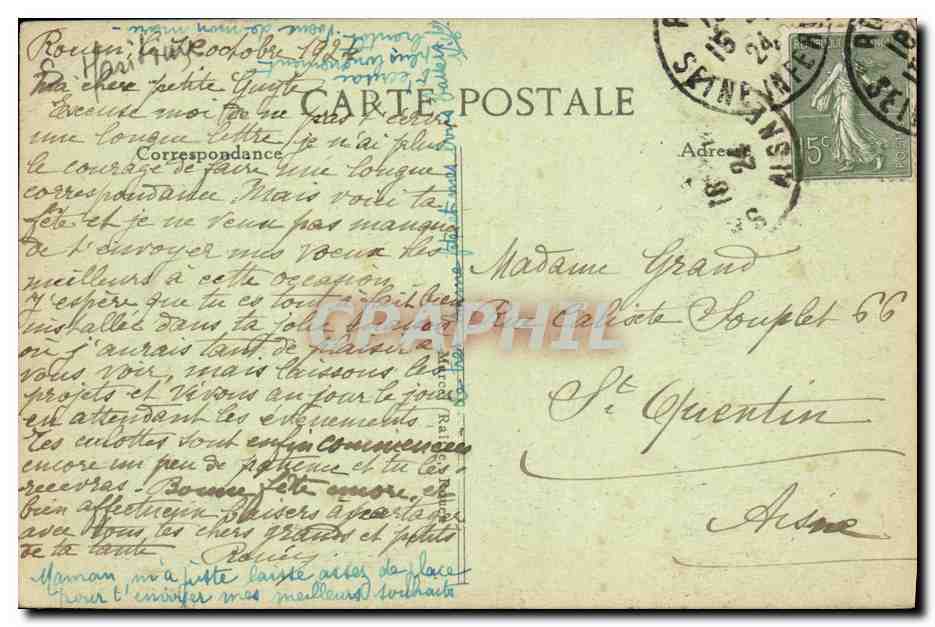 Rouen, octobre 192
Ma chère petite Guyte
CARTE POSTALE
Excuse moi de ne pas t'écrire
une longue lettre, je n'ai plus
Correspondance
Adresse
le courage de faire une longue
correspondance. Mais voici ta
fête et je ne veux pas manquer
de t'envoyer mes voeux les
meilleurs à cette occasion.
J'espère que tu es tout à fait bien
installée dans ta jolie
où j'aurais tant de plaisir à
vous voir, mais laissons les
projets et vivons au jour le jour
en attendant les évènements.
Les culottes sont enfin commencées
encore un peu de patience et tu les
recevras. Bonne fête encore, et
bien affectueux baisers à partager
avec tous les chers grands et petits
de ta tante
Maman m'a juste laissé assez de place
pour t'envoyer mes meilleurs souhaits
Madame Grand
Rue Calixte Souplet 66
St Quentin
Aisne
REPUBLIQUE FRANCAISE
15c
CPAPHIL